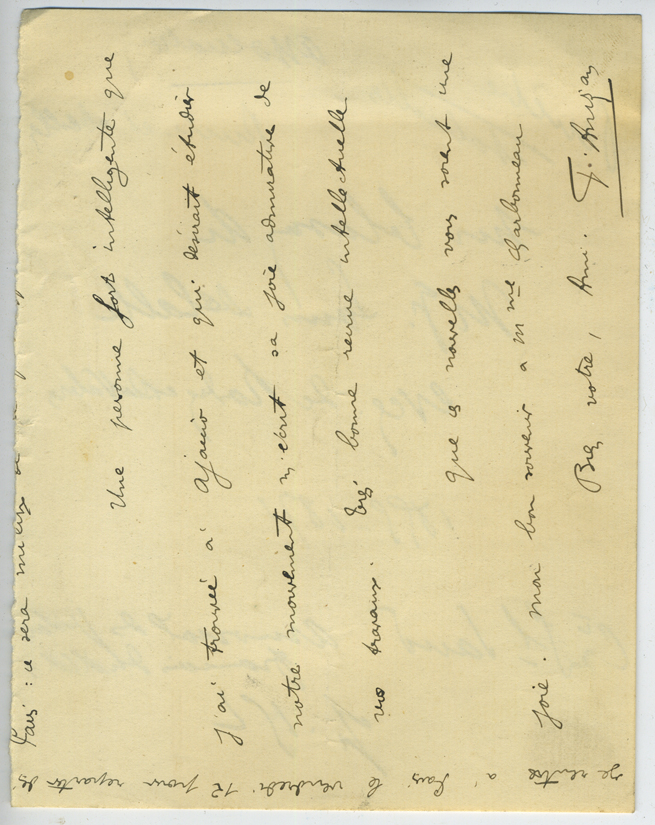 Paris : ce sera mieux
Une personne fort intelligente que
j'ai trouvée à Ajaccio et qui désirait étudier
notre mouvement m'écrit sa joie admirative de
vos travaux. très bonne recrue intellectuelle
que ces nouvelles vous soient une
joie. mon bon souvenir à Mme Charbonneau
Bien votre, Ami.
je rentre à Paris le vendredi 12 pour repartir